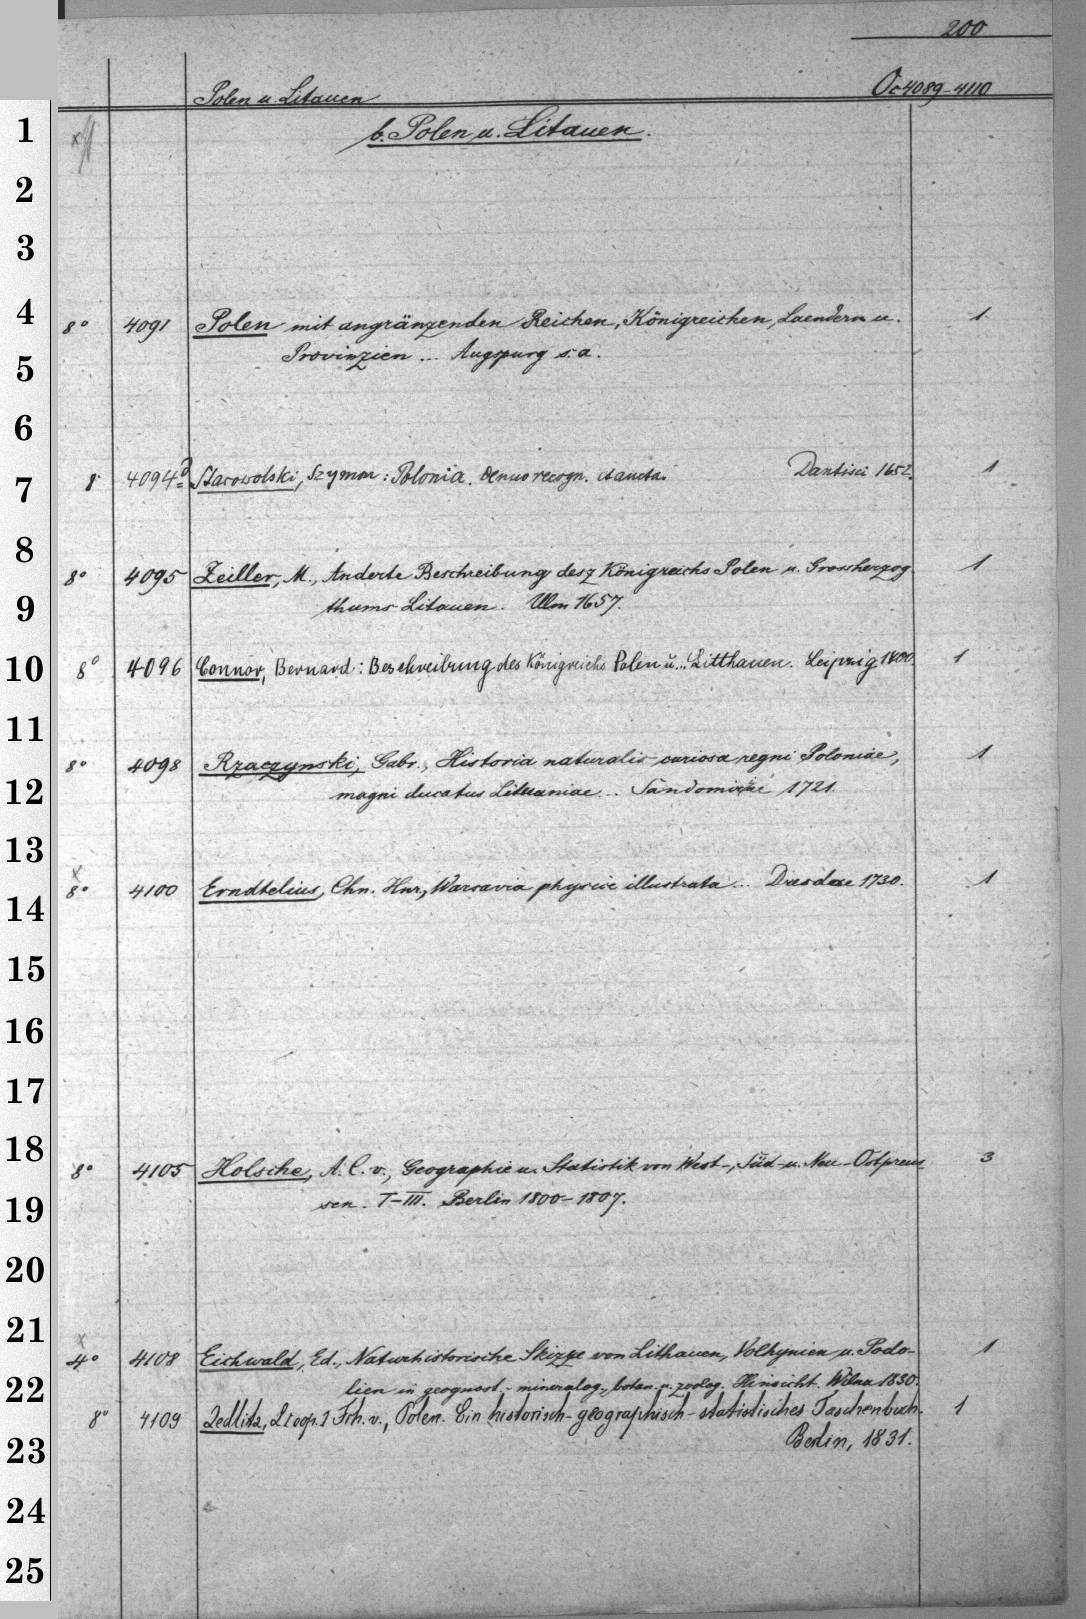 200
Polen u Litauen Oc 4089-4110
1 b. Polen u. Litauen.
2
3
4 8° 4091 Polen mit angränzenden Reichen, Königreichen, Laendern u. 1
5 Provinzien ... Augspurg s. a.
6
7 8° 4094 Starowolski, Szymon: Polonia. Denuo recogn. et aucta. Dantisci 1652. 1
8 8° 4095 Zeiller, M., Anderte Beschreibung desz Königreichs Polen u. Grossherzog- 1
9 thums Litauen. Ulm 1657.
10 8° 4096 Connor, Bernard: Beschreibung des Königreichs Polen u... Litthauen. Leipzig 1
11 8° 4098 Rzaczynski, Gabr., Historia naturalis curiosa regni Poloniae, 1
12 magni ducatus Lituaniae ... Sandomiriae 1721.
13
14 x 8° 4100 Erndtelius, Chn. Hnr., Warsavia physice illustrata ... Dresdae 1730. 1
15
16
17
18 8° 4105 Holsche, A. C. v., Geographie u. Statistik von West-, Süd- u. Neu-Ostpreus 3
19 sen. I-III. Berlin 1800-1807.
20
21 x 4° 4108 Eichwald, Ed., Naturhistorische Skizze von Lithauen, Volhynien u. Podo- 1
22 lien in geognost.-mineralog., botan. u. zoolog. Hinsicht. Wilna 1830.
8° 4109 Zedlitz, L[eop.] Frh. v., Polen. Ein historisch-geographisch-statistisches Taschenbuch. 1
23 Berlin, 1831.
24
25